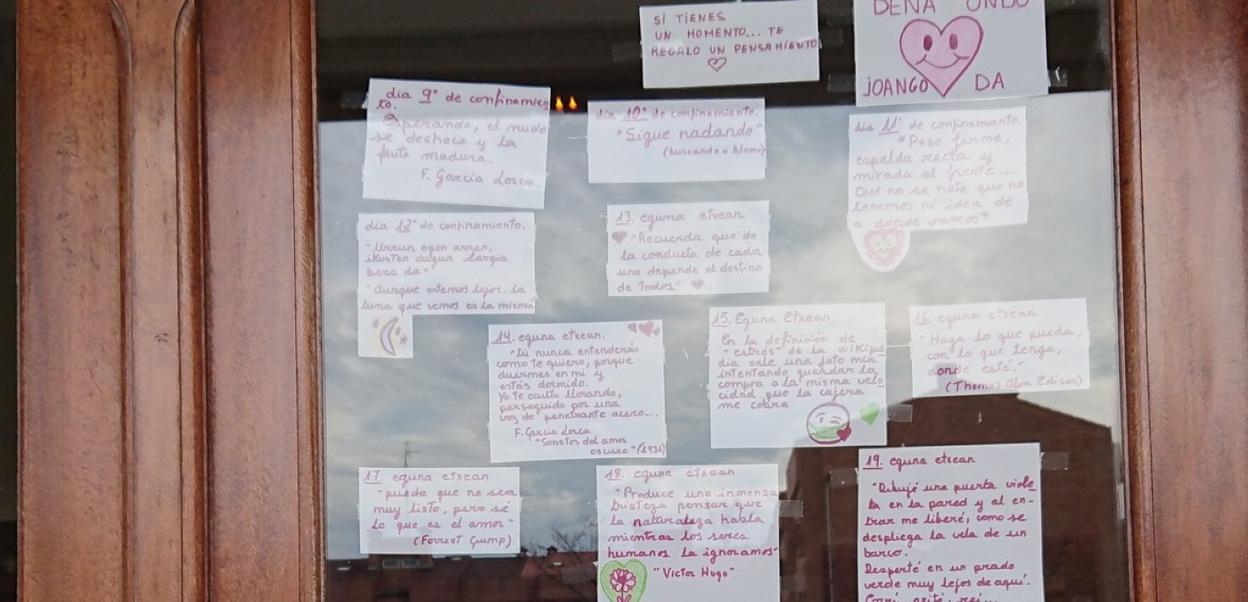 SI TIENES
UN MOMENTO... TE
REGALO UN PENSAMIENTO
DENA ONDO
JOANGO DA
día 9º de confinamien
to.
Esperando, el nudo
se deshace y la
fruta madura.
F. García Lorca.
día 10º de confinamiento.
"Sigue nadando"
(buscando a Nemo)
día 11º de confinamiento.
"Paso firme,
espalda recta y
mirada al frente...
Que no se note que no
tenemos ni idea de
a dónde vamos"
día 12º de confinamiento.
"Urrun egon arren,
ikusten dugun ilargia
bera da"
"Aunque estemos lejos, la
luna que vemos es la misma"
13. eguna etxean
"Recuerda que de
la conducta de cada
uno depende el destino
de todos"
14. eguna etxean.
"Tú nunca entenderás
como te quiero, porque
duermes en mí y
estás dormido.
Yo te oculto llorando,
perseguido por una
voz de penetrante acero...
F. García Lorca
"Sonetos del amor
oscuro" (1936)
15. Eguna Etxean
En la definición de
"estrés" de la wikipe
dia sale una foto mía
intentando guardar la
compra a la misma velo
cidad que la cajera
me cobra.
16 eguna etxean
"Haga lo que pueda,
con lo que tenga,
donde esté."
(Thomas Alva Edison)
17. eguna etxean
"puede que no sea
muy listo, pero sé
lo que es el amor"
(Forrest Gump)
18. eguna etxean
"Produce una inmensa
tristeza pensar que
la naturaleza habla
mientras los seres
humanos la ignoramos"
"Victor Hugo"
19. eguna etxean
"Dibujé una puerta viole
ta en la pared y al en-
trar me liberé, como se
despliega la vela de un
barco.
Desperté en un prado
verde muy lejos de aquí.
Corrí, grité, reí...